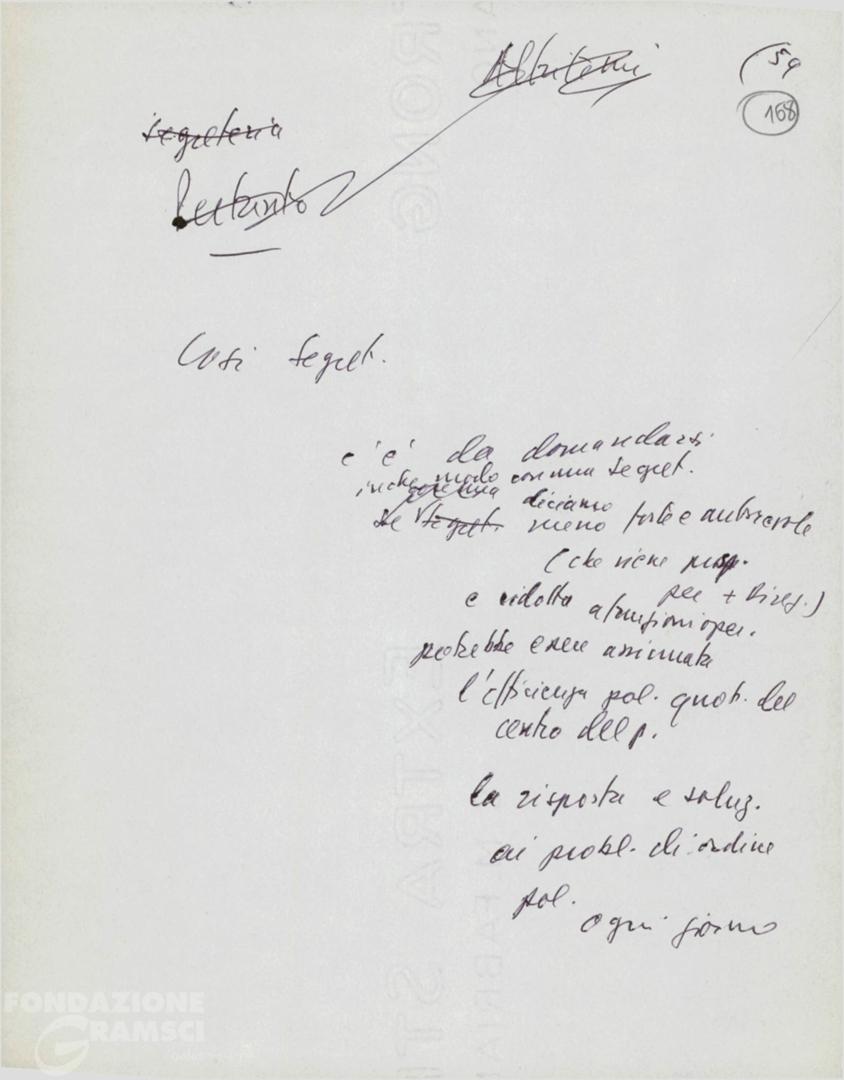 59
168
segreteria
Pertanto
Così segret.
c'è da domandarsi
in che modo con una segret.
diciamo
se segret. meno forte e autorevole
(che viene prop.
per + Direz.)
e ridotta a funzioni oper.
potrebbe essere assicurata
l'efficienza pol. quot. del
centro del p.
la risposta e soluz.
ai probl. di ordine
pol.
ogni giorno
FONDAZIONE
GRAMSCI